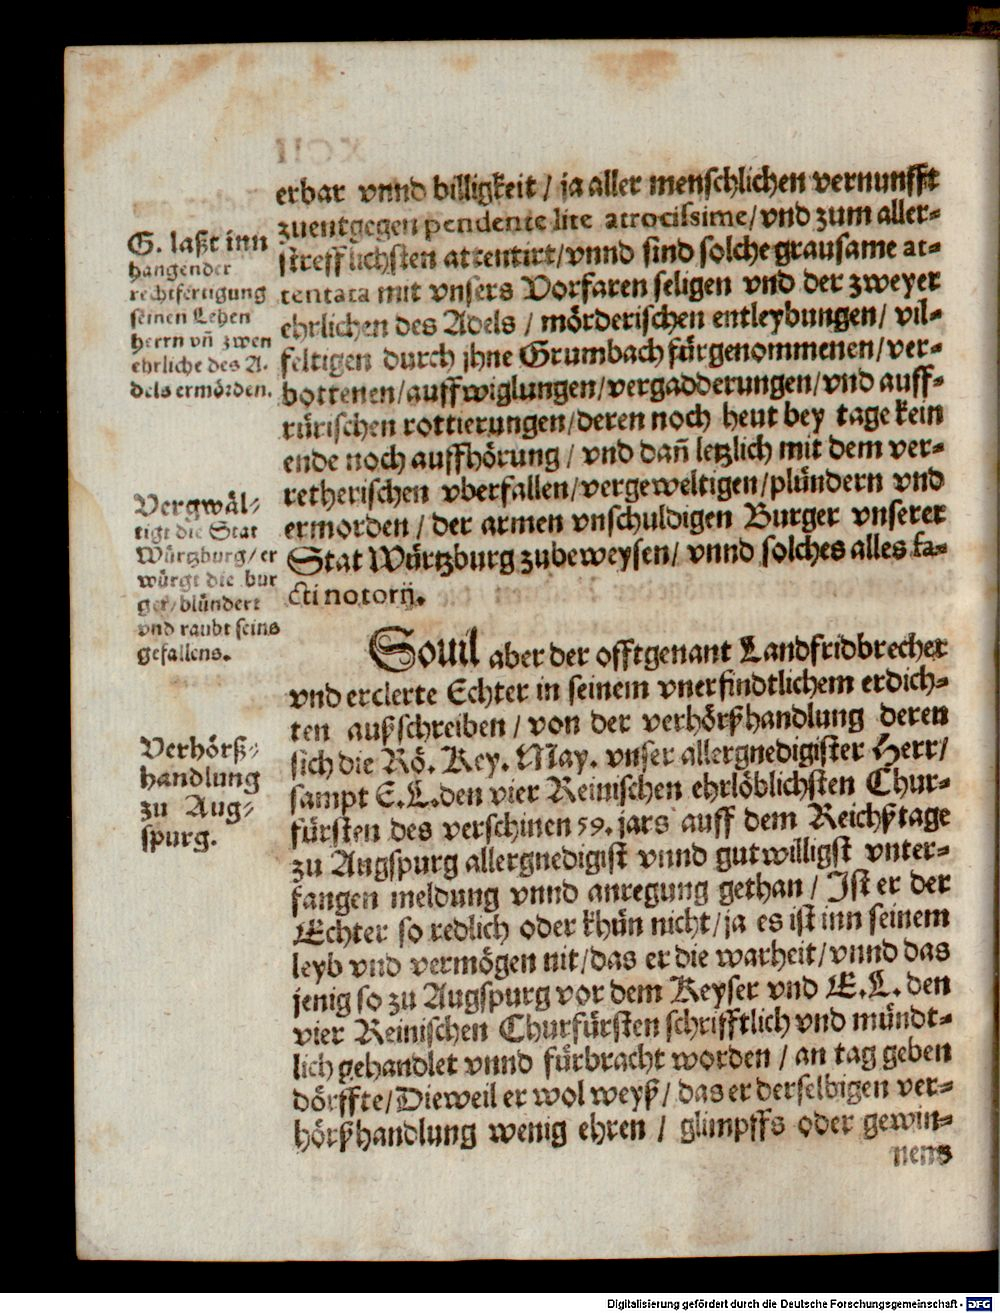 erbar vnnd billigkeit / ja aller menschlichen vernunfft
zuentgegen pendente lite atrocissime/ vnd zum aller-
strefflichsten attentirt/ vnnd sind solche grausame at-
tentata mit vnsers Vorfaren seligen vnd der zweyer
ehrlichen des Adels / mörderischen entleybungen/ vil-
feltigen durch jhne Grumbach fürgenommenen/ ver-
bottenen/ auffwiglungen/ vergadderungen/ vnd auff-
rürischen rottierungen/ deren noch heut bey tage kein
ende noch auffhörung / vnd dañ letzlich mit dem ver-
retherischen vberfallen/ vergeweltigen/ plündern vnd
ermorden / der armen vnschuldigen Burger vnserer
Stat Würtzburg zubeweysen/ vnnd solches alles fa-
cti notorij.
G. laßt inn
hangender
rechtfertigung
seinen Lehen
herrn vñ zwen
ehrliche des A-
dels ermörden.
Vergwäl-
tigt die Stat
Würtzburg/ er
würgt die bur
ger/ blündert
vnd raubt seins
gefallens.
Souil aber der offtgenant Landfridbrecher
vnd erclerte Echter in seinem vnerfindtlichem erdich-
ten außschreiben / von der verhörßhandlung deren
sich die Rö. Key. May. vnser allergnedigister Herr/
sampt E. L. den vier Reinischen ehrlöblichsten Chur-
fürsten des verschinen 59. jars auff dem Reichßtage
zu Augspurg allergnedigist vnnd gutwilligst vnter-
fangen meldung vnnd anregung gethan / Ist er der
Echter so redlich oder khün nicht/ ja es ist inn seinem
leyb vnd vermögen nit/ das er die warheit/ vnnd das
jenig so zu Augspurg vor dem Keyser vnd E. L. den
vier Reinischen Churfürsten schrifftlich vnd mündt-
lich gehandlet vnnd fürbracht worden / an tag geben
dörffte/ Dieweil er wol weyß/ das er derselbigen ver-
hörßhandlung wenig ehren / glimpffs oder gewin-
nens
Verhörß-
handlung
zu Aug-
spurg.
Digitalisierung gefördert durch die Deutsche Forschungsgemeinschaft - DFG